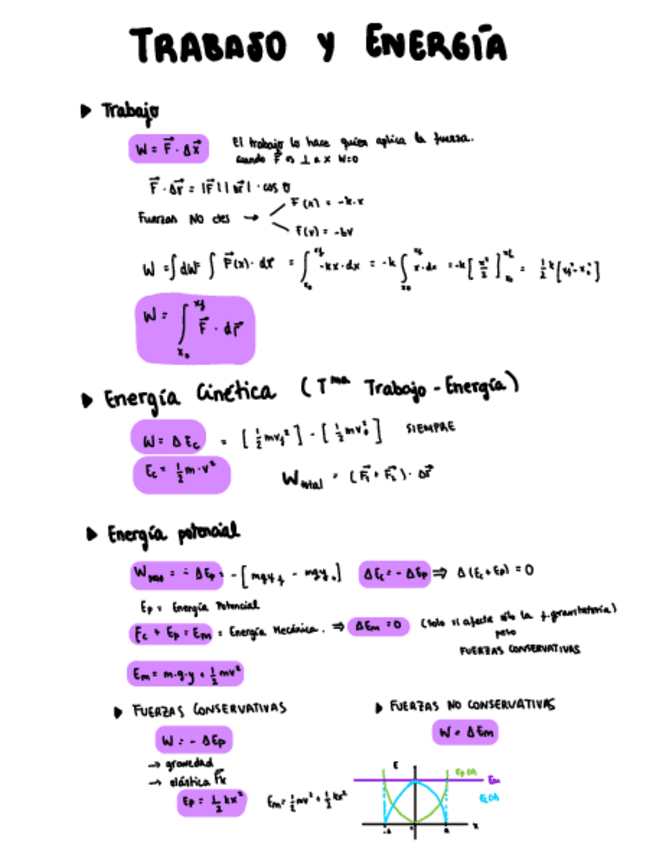 TRABAJO Y ENERGÍA
▶ Trabajo
W = F⃗ · Δx⃗ El trabajo lo hace quien aplica la fuerza.
cuando F⃗ es ⊥ a x W=0
F⃗ · Δr⃗ = |F⃗| |Δr⃗| · cos θ
F(x) = -k·x
Fuerzas NO ctes →
F(v) = -bv
W = ∫dW = ∫ F⃗(x) · dr⃗ = ∫ₓ₀ˣᶠ -kx·dx = -k ∫ₓ₀ˣᶠ x·dx = -k [x²/2]ₓ₀ˣᶠ = ½ k [xf² - x₀²]
W = ∫ₓ₀ˣᶠ F⃗ · dr⃗
▶ Energía Cinética (Tᵐᵃ Trabajo - Energía)
W = ΔEc = [½ mvf²] - [½ mv₀²] SIEMPRE
Ec = ½ m·v² Wtotal = (F⃗₁ + F⃗₂) · Δr⃗
▶ Energía potencial
Wpeso = - ΔEp = -[mgyf - mgy₀] ΔEc = - ΔEp ⇒ Δ(Ec + Ep) = 0
Ep = Energía Potencial
Ec + Ep = Em = Energía Mecánica. ⇒ ΔEm = 0 (solo si afecta sólo la f. gravitatoria)
peso
FUERZAS CONSERVATIVAS
Em = m·g·y + ½ mv²
▶ FUERZAS CONSERVATIVAS
W = - ΔEp
→ gravedad
→ elástica Fk
Ep = ½ kx² Em = ½ mv² + ½ kx²
▶ FUERZAS NO CONSERVATIVAS
W = ΔEm
E
Ep(x)
Em
Ec(x)
-A
0
A
x